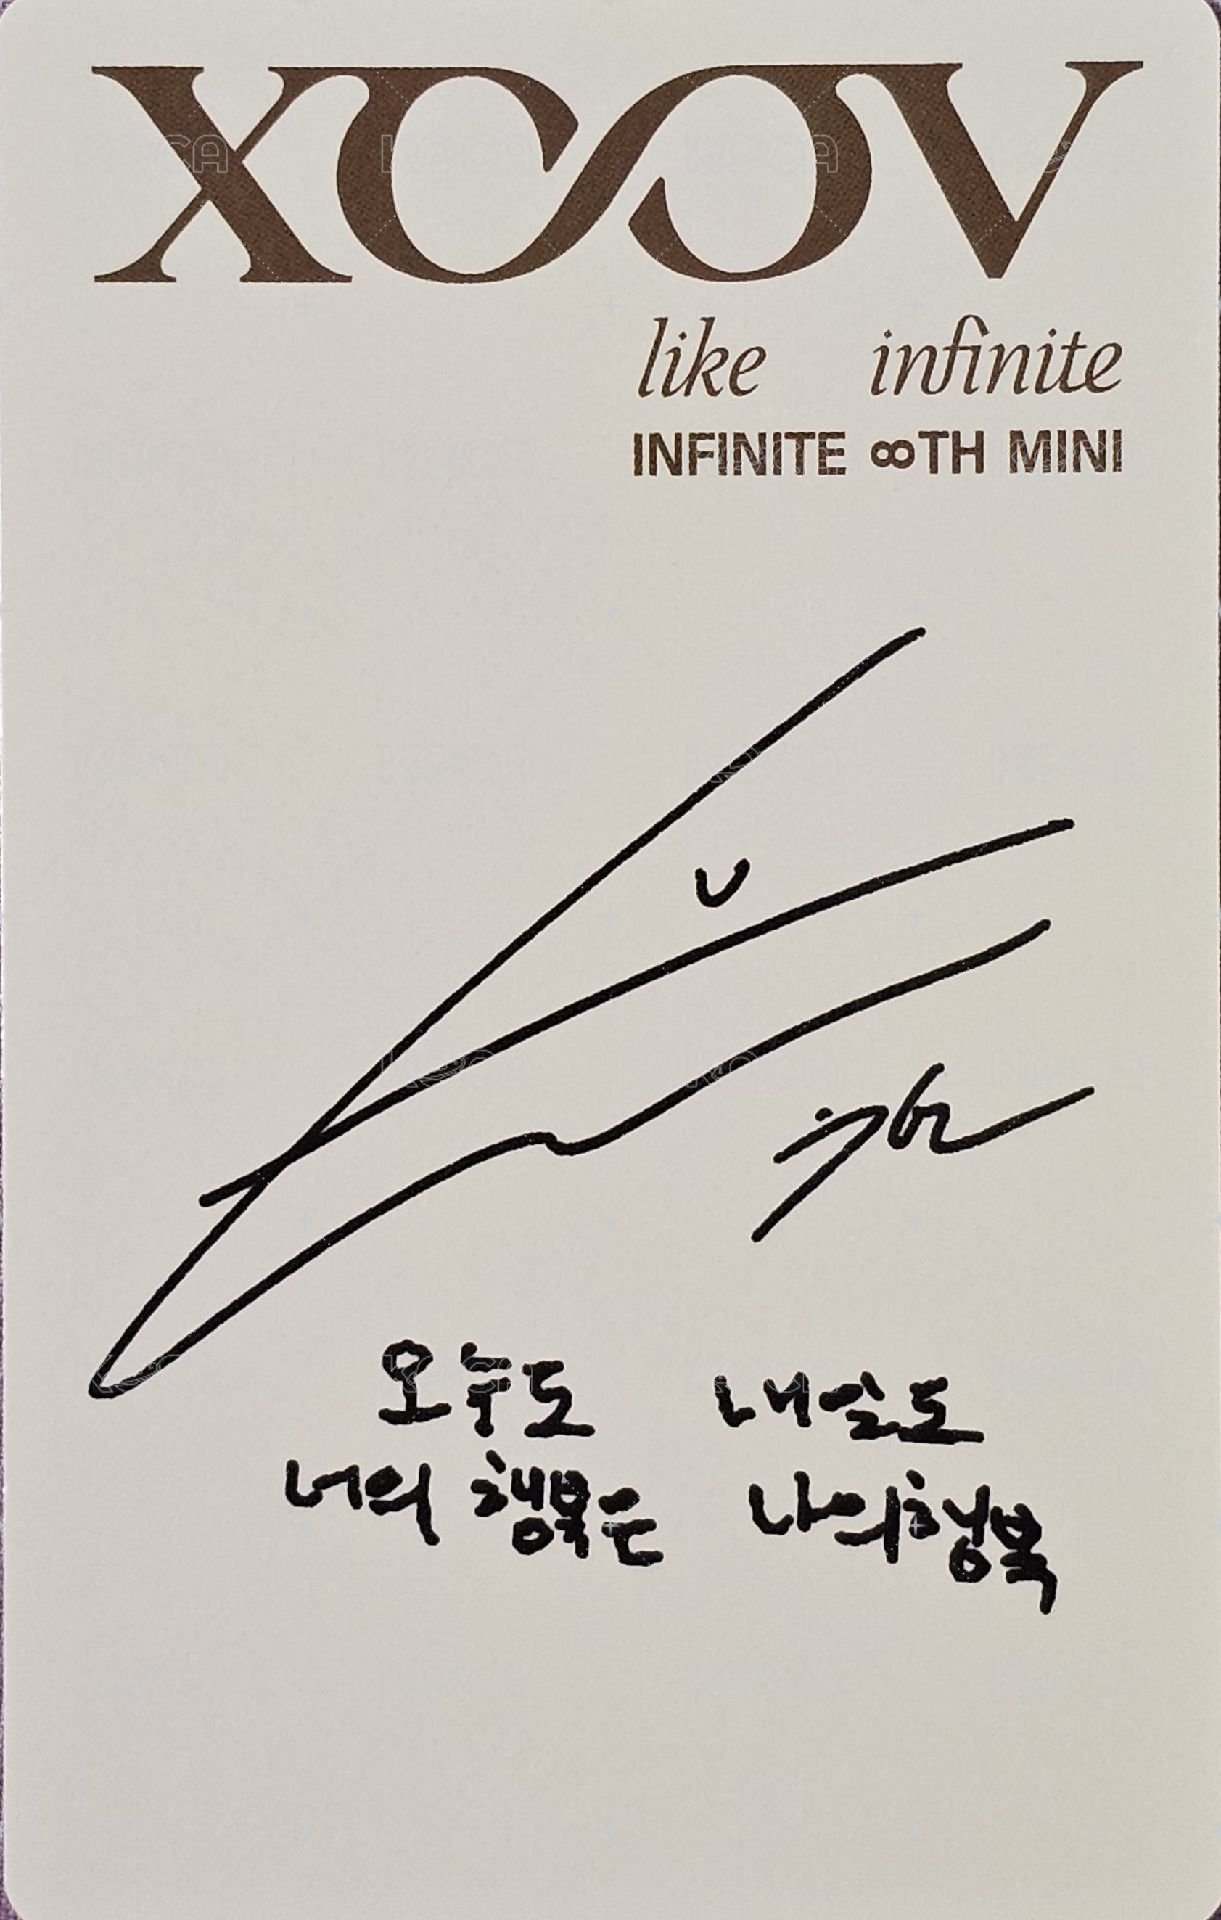 XOOV
like infinite
INFINITE ∞TH MINI
오늘도 내일도
너의 행복은 나의 행복